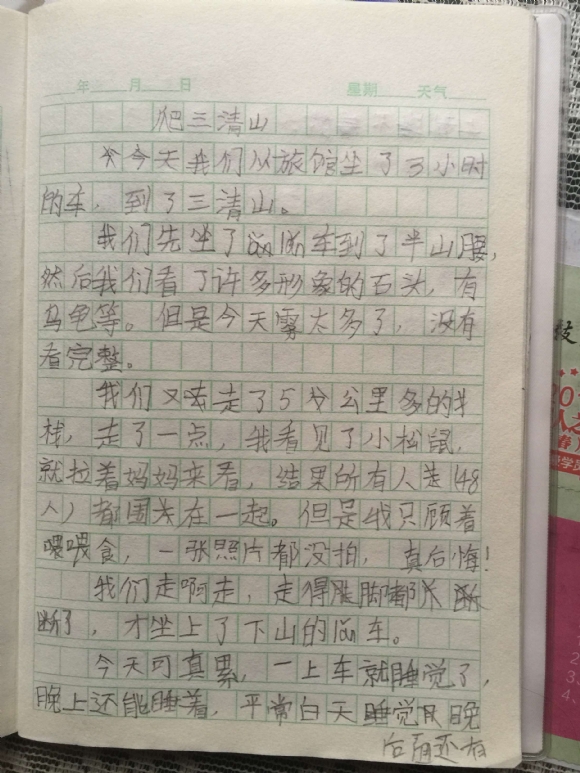 年 月 日 星期 天气
爬三清山
今天我们从旅馆坐了3小时
的车，到了三清山。
我们先坐了lǎn lǎn车到了半山腰，
然后我们看了许多形象的石头，有
乌龟等。但是今天雾太多了，没有
看完整。
我们又去走了5公里多的
栈，走了一点，我看见了小松鼠，
就拉着妈妈来看，结果所有人（48
人）都围在一起。但是我只顾着
喂喂食，一张照片都没拍，真后悔！
我们走啊走，走得腿脚都
断了，才坐上了下山的lǎn车。
今天可真累，一上车就睡觉了，
晚上还能睡着，平常白天睡觉晚
后面还有